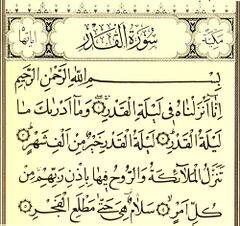 مكية سورة القدر آياتها
بِسْمِ اللَّهِ الرَّحْمَنِ الرَّحِيمِ
إِنَّا أَنزَلْنَاهُ فِي لَيْلَةِ الْقَدْرِ وَمَا أَدْرَاكَ مَا
لَيْلَةُ الْقَدْرِ لَيْلَةُ الْقَدْرِ خَيْرٌ مِنْ أَلْفِ شَهْرٍ
تَنَزَّلُ الْمَلَائِكَةُ وَالرُّوحُ فِيهَا بِإِذْنِ رَبِّهِمْ مِنْ
كُلِّ أَمْرٍ سَلَامٌ هِيَ حَتَّى مَطْلَعِ الْفَجْرِ